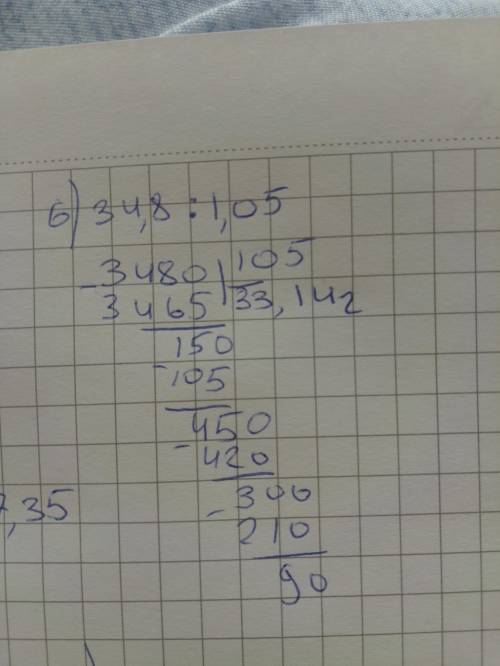 б) 34,8 : 1,05
- 3480 | 105
3465 | 33,142
150
- 105
450
- 420
- 300
210
90
,35